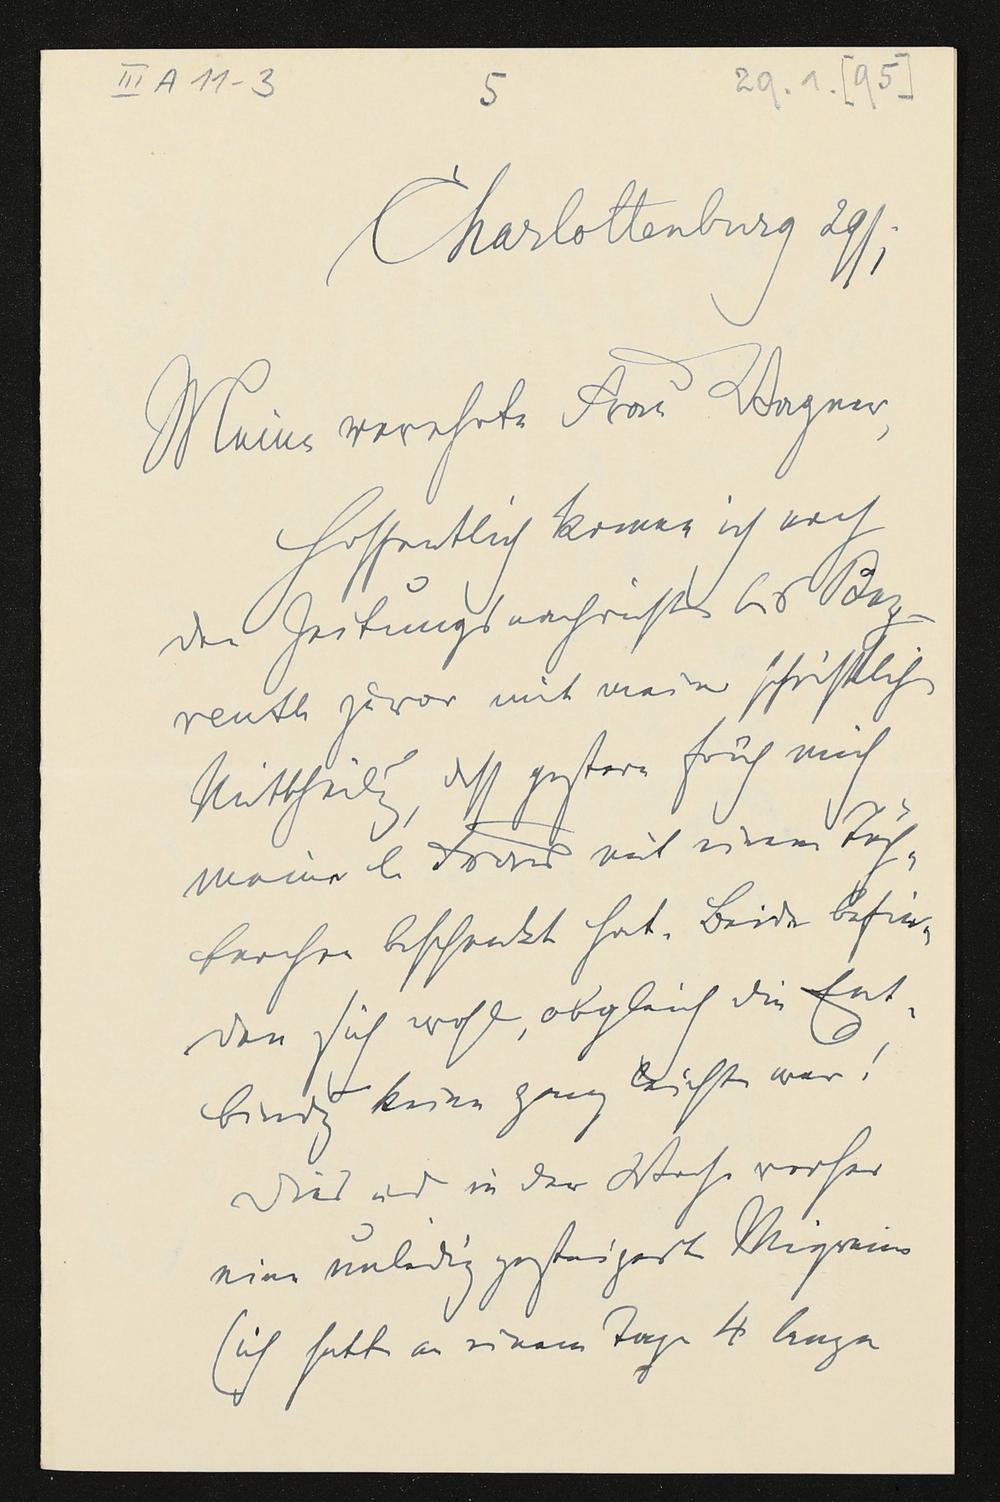 III A 11-3 5 29. 1. [95]
Charlottenburg 29/1
Meine verehrte Frau Wagner,
Hoffentlich komme ich noch
den Zeitungsnachrichten bis Bay-
reuth zuvor mit meiner schriftlich
Mittheilg, dss gestern früh mich
meine l. Frau mit einem Töch-
terchen beschenkt hat. Beide befin-
den sich wohl, obgleich die Ent-
bindg keine ganz leichte war!
Dies und in der Woche vorher
eine unleidig gesteigerte Migraine
(ich hatte an einem Tage 4 lange